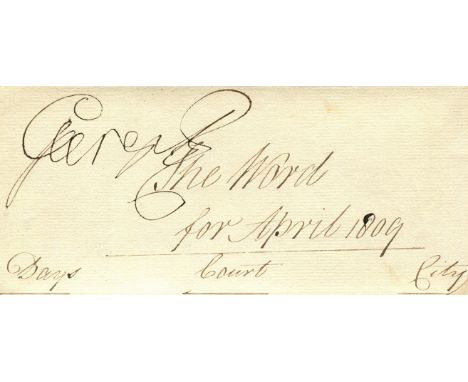 George R
The Word
for April 1809
Days Court City